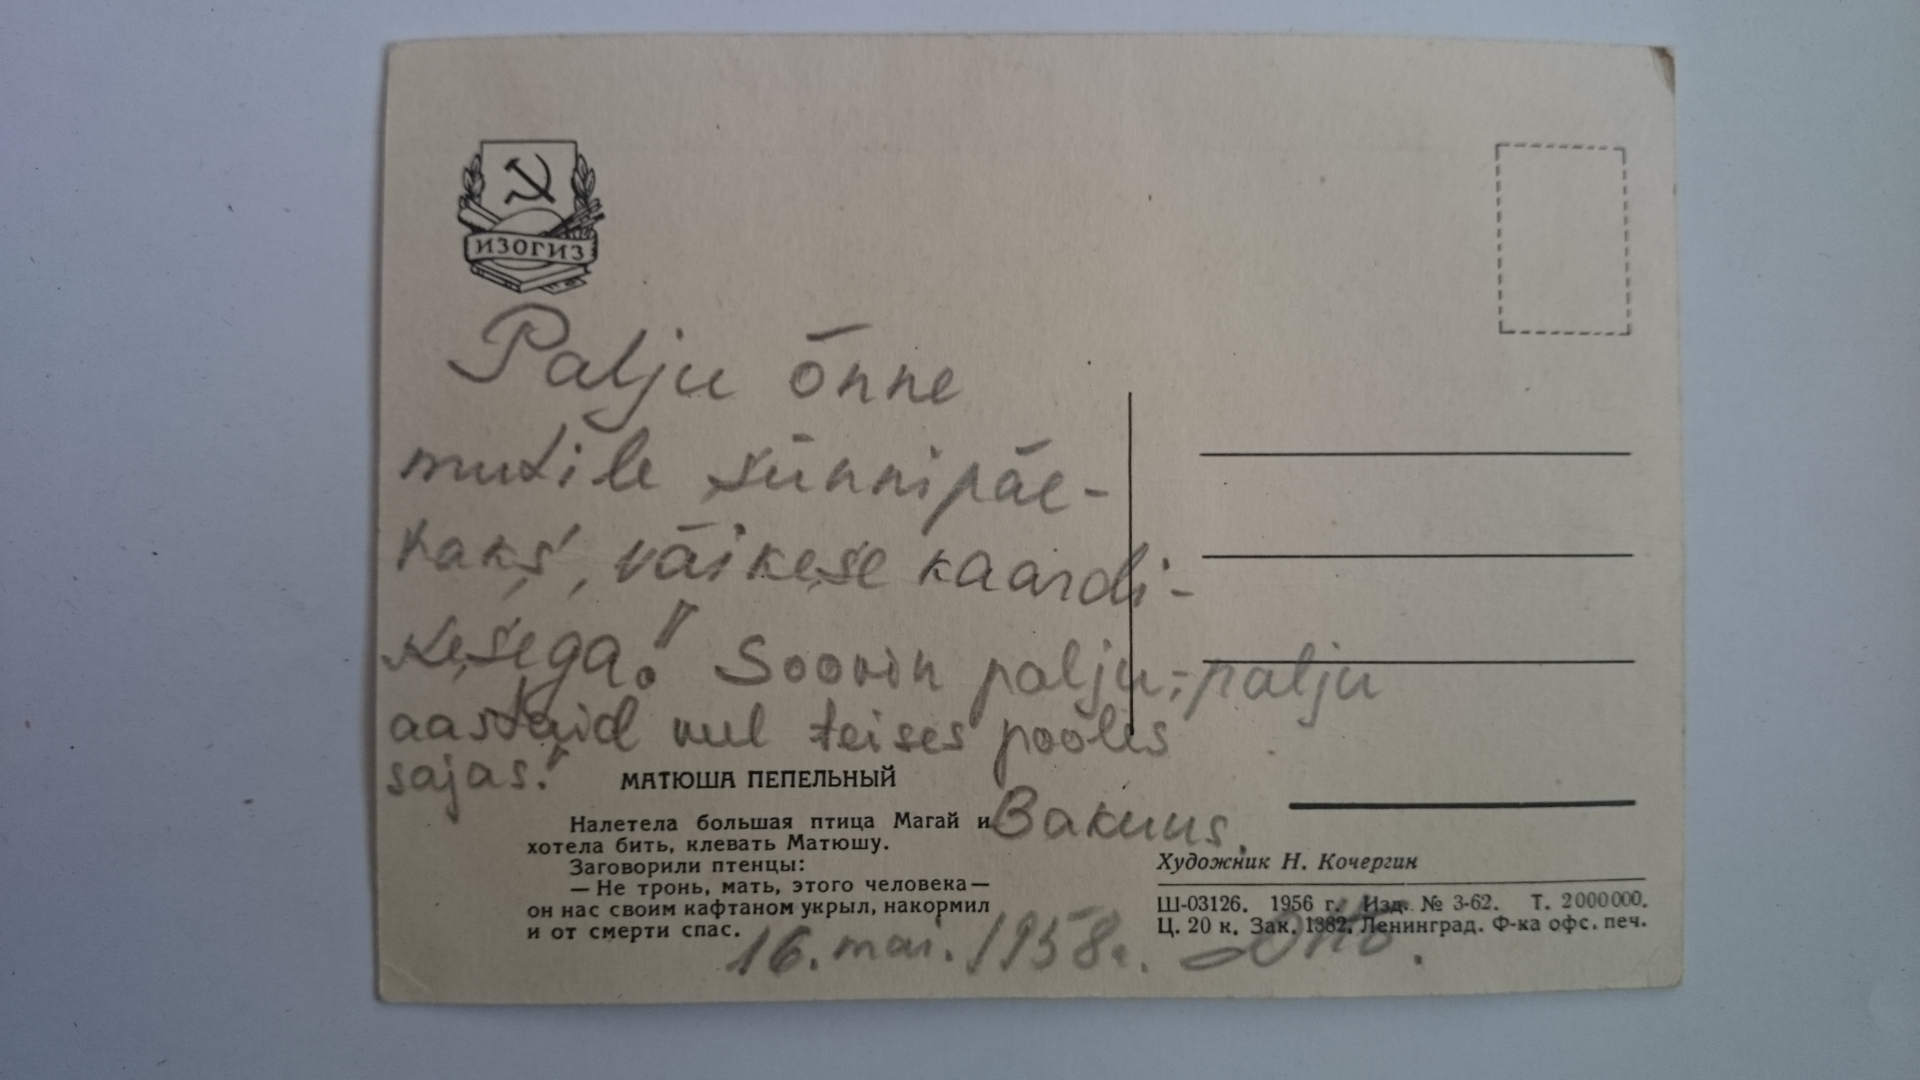 ИЗОГИЗ
Palju õnne
mutile sünnipäe-
vaks, väikese kaardi-
kesega! Soovin palju-palju
aastaid veel teises pooles
sajas!
МАТЮША ПЕПЕЛЬНЫЙ
Налетела большая птица Магай и
хотела бить, клевать Матюшу.
Заговорили птенцы:
— Не тронь, мать, этого человека —
он нас своим кафтаном укрыл, накормил
и от смерти спас.
Bakuus.
16. mai. 1958a.
Художник Н. Кочергин
Ш-03126. 1956 г. Изд. № 3-62. Т. 2000000.
Ц. 20 к. Зак. 1382. Ленинград. Ф-ка офс. печ.